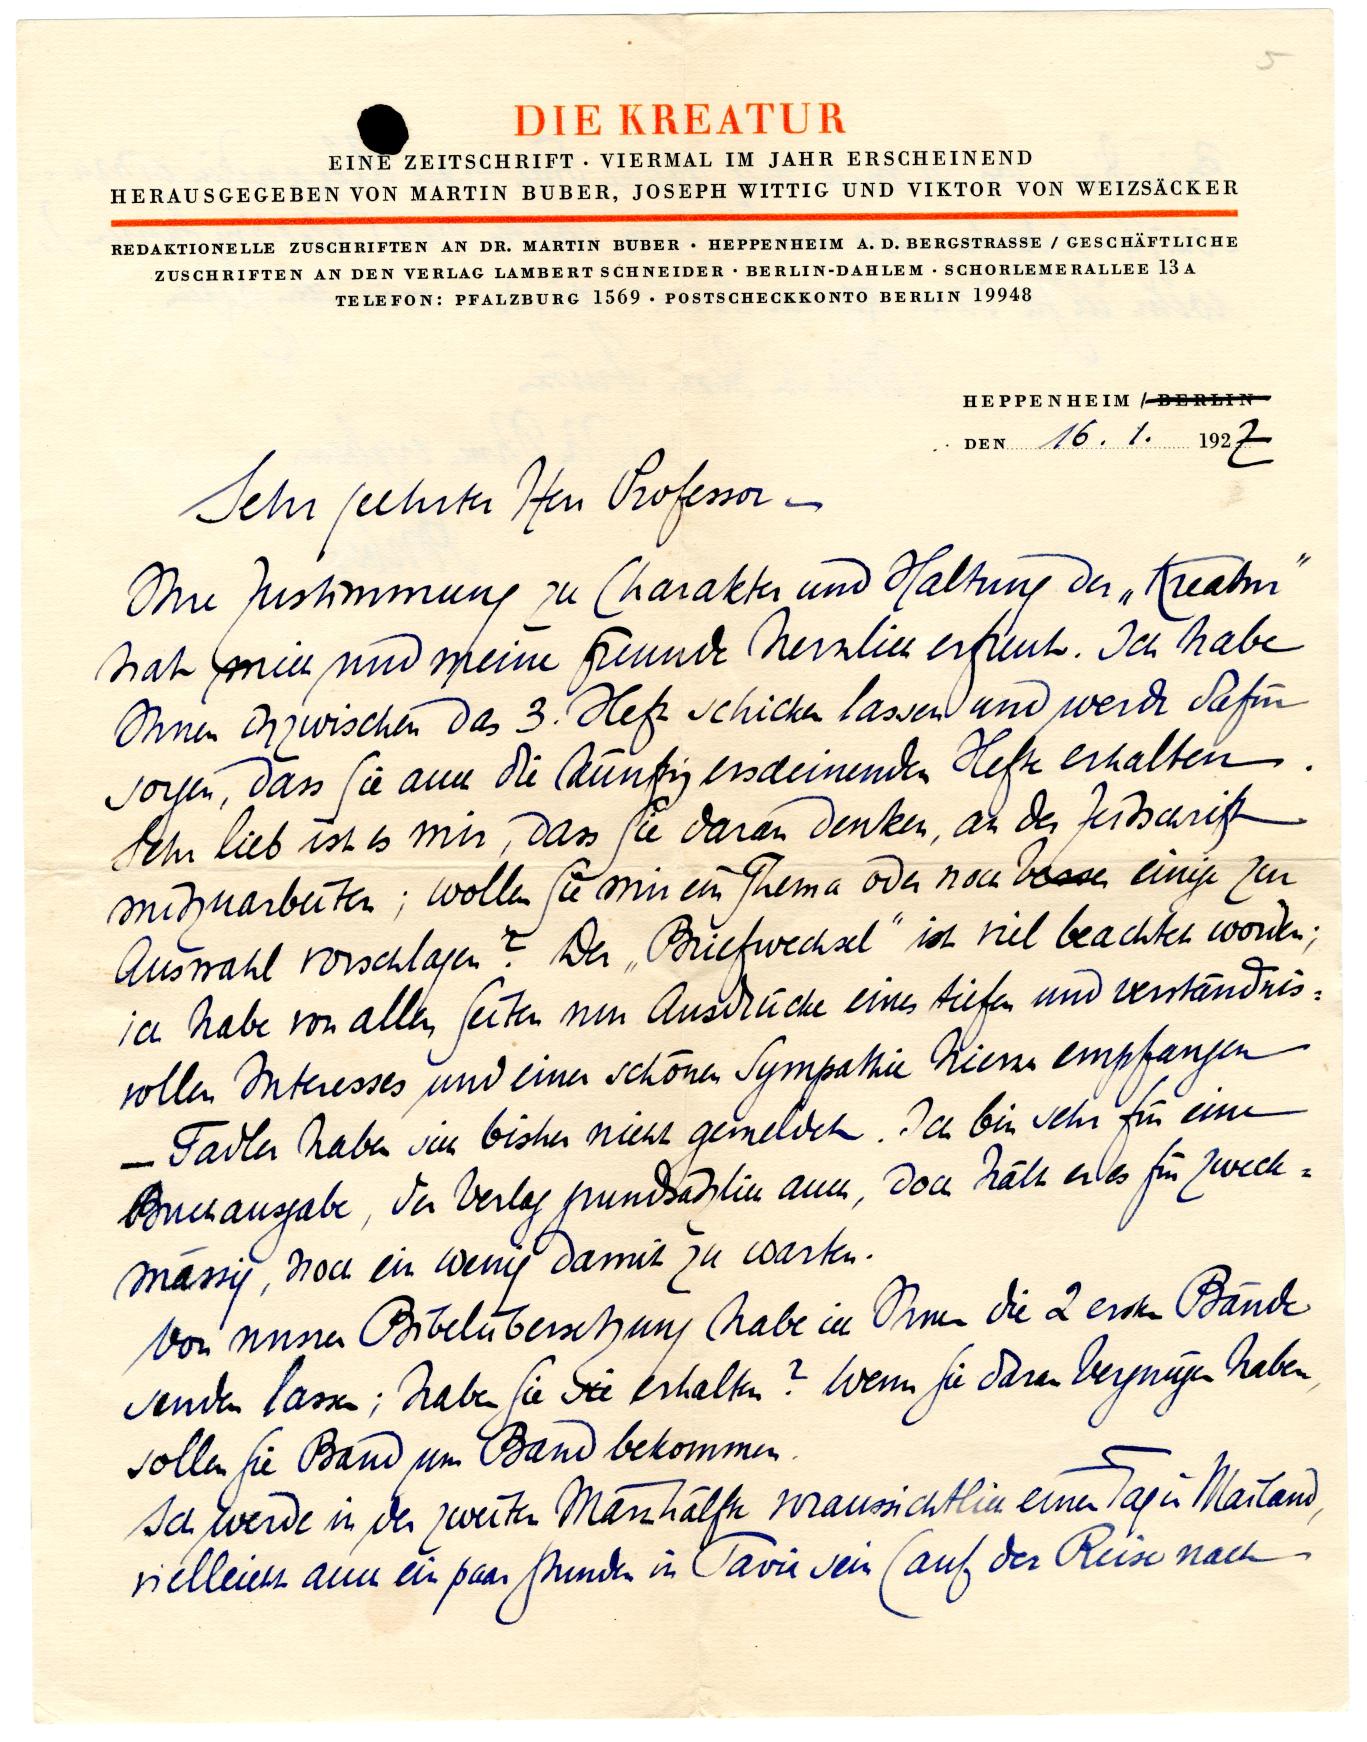 5
DIE KREATUR
EINE ZEITSCHRIFT · VIERMAL IM JAHR ERSCHEINEND
HERAUSGEGEBEN VON MARTIN BUBER, JOSEPH WITTIG UND VIKTOR VON WEIZSÄCKER
REDAKTIONELLE ZUSCHRIFTEN AN DR. MARTIN BUBER · HEPPENHEIM A. D. BERGSTRASSE / GESCHÄFTLICHE
ZUSCHRIFTEN AN DEN VERLAG LAMBERT SCHNEIDER · BERLIN-DAHLEM · SCHORLEMERALLEE 13 A
TELEFON: PFALZBURG 1569 · POSTSCHECKKONTO BERLIN 19948
HEPPENHEIM / BERLIN
DEN 16. 1. 1927
Sehr geehrter Herr Professor –
Ihre Zustimmung zu Charakter und Haltung der „Kreatur"
hat mich und meine Freunde herzlich erfreut. Ich habe
Ihnen inzwischen das 3. Heft schicken lassen und werde dafür
sorgen, dass Sie auch die künftig erscheinenden Hefte erhalten.
Sehr lieb ist es mir, dass Sie daran denken, an der Zeitschrift
mitzuarbeiten; wollen Sie mir ein Thema oder noch besser einige zur
Auswahl vorschlagen? Der „Briefwechsel" ist viel beachtet worden;
ich habe von allen Seiten nur Ausdrücke eines tiefen und verständnis=
vollen Interesses und einer schönen Sympathie hierzu empfangen
– Tadler haben sich bisher nicht gemeldet. Ich bin sehr für eine
Buchausgabe, der Verlag grundsätzlich auch, doch hält er es für zweck=
mässig, noch ein wenig damit zu warten.
Von unsrer Bibelübersetzung habe ich Ihnen die 2 ersten Bände
senden lassen; haben Sie sie erhalten? Wenn Sie daran Vergnügen haben,
sollen Sie Band um Band bekommen.
Ich werde in der zweiten Märzhälfte voraussichtlich einen Tag in Mailand,
vielleicht auch ein paar Stunden in Pavia sein (auf der Reise nach